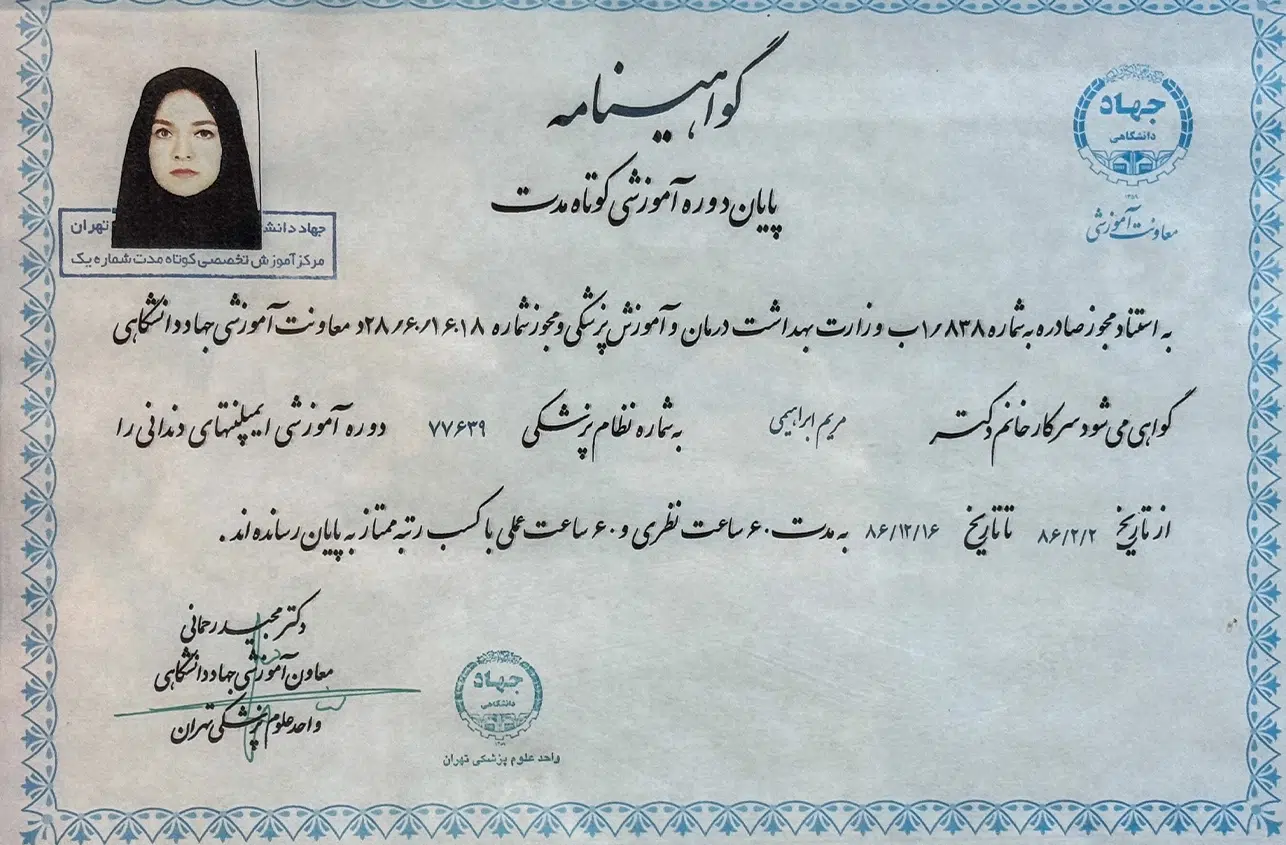 گواهینامه
پایان دوره آموزشی کوتاه مدت
جهاد
دانشگاهی
۱۳۵۹
معاونت آموزشی
جهاد دانش تهران
مرکز آموزش تخصصی کوتاه مدت شماره یک
به استناد مجوز صادره به شماره ۱/۸۳۸ب وزارت بهداشت درمان و آموزش پزشکی و مجوز شماره ۲۸/۶۰/۱۶۰۱۸د معاونت آموزشی جهاد دانشگاهی
گواهی می شود سرکار خانم دکتر مریم ابراهیمی به شماره نظام پزشکی ۷۷۶۳۹ دوره آموزشی ایمپلنتهای دندانی را
از تاریخ ۸۶/۲/۲ تا تاریخ ۸۶/۱۲/۱۶ به مدت ۶۰ ساعت نظری و ۶۰ ساعت عملی با کسب رتبه ممتاز به پایان رسانده اند .
دکتر مجید رحمانی
معاون آموزشی جهاد دانشگاهی
واحد علوم پزشکی تهران
جهاد
دانشگاهی
واحد علوم پزشکی تهران